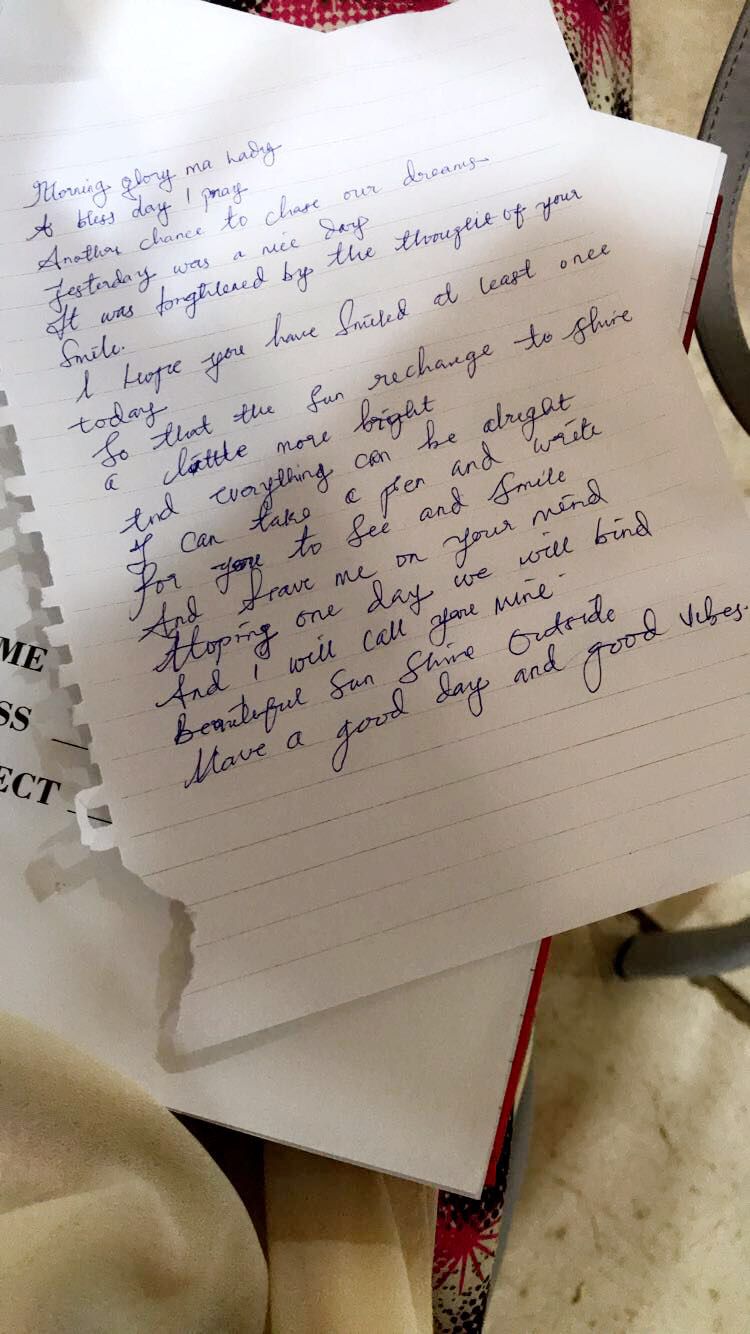 Morning glory ma lady
A bless day I pray
Another chance to chase our dreams
Yesterday was a nice day
It was brightened by the thought of your
Smile.
I hope you have Smiled at least once
today
So that the Sun rechange to shine
a little more bright
And everything can be alright
If can take a pen and write
For you to See and Smile
And Leave me on your mind
Hoping one day we will bind
And I will call you mine.
Beautiful Sun Shine Outside
Have a good day and good vibes.
ME
SS
ECT